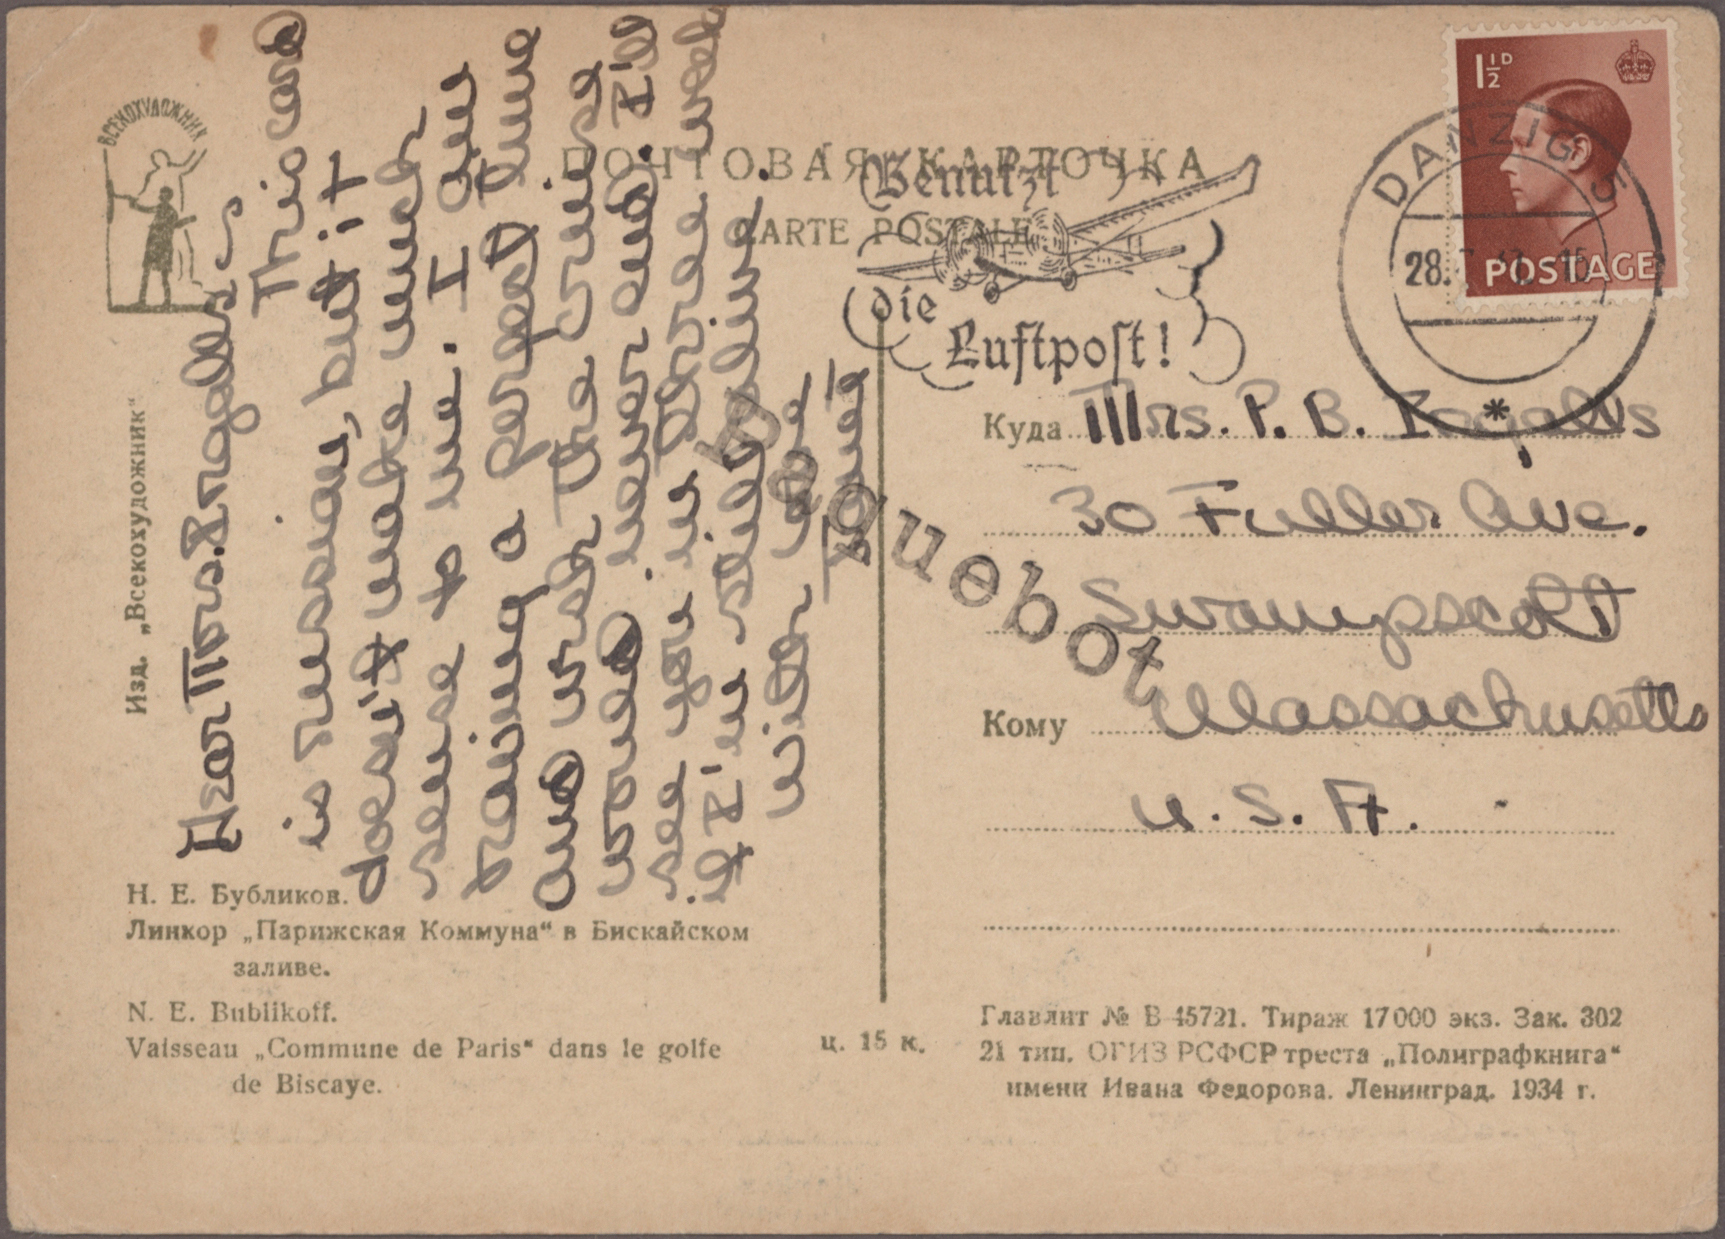 ВСЕКОХУДОЖНИК
Изд. „Всекохудожник“
ПОЧТОВАЯ КАРТОЧКА
CARTE POSTALE
Benutzt
die
Luftpost!
1½D
POSTAGE
DANZIG 5
28.
Paquebot
Dear Mrs.
This card
is russian, but it
doesn't make much
sense to me. I am
having a perfect time
and wish the cruise
would never end. I'll
see you in three weeks
if I'm still alive.
with love
Куда Mrs. P. B.
30 Fuller Ave.
Swampscott
Кому Massachusetts
U. S. A.
Н. Е. Бубликов.
Линкор „Парижская Коммуна“ в Бискайском
заливе.
N. E. Bublikoff.
Vaisseau „Commune de Paris“ dans le golfe
de Biscaye.
ц. 15 к.
Главлит № В 45721. Тираж 17000 экз. Зак. 302
21 тип. ОГИЗ РСФСР треста „Полиграфкнига“
имени Ивана Федорова. Ленинград. 1934 г.